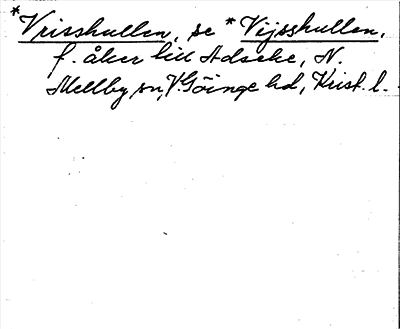 *Vrisshullen, se *Vijsshullen,
f. åker till Adseke, N.
Mellby sn, V. Göinge hd, Krist. l.